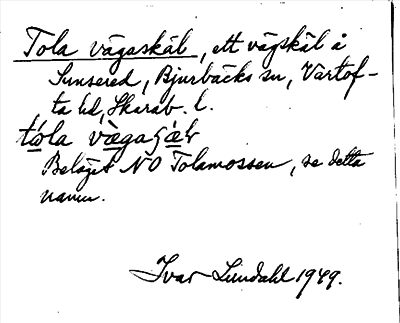 Tola vägaskäl, ett vägskäl å
Sunsered, Bjurbäcks sn, Vartof-
ta hd, Skarab. l.
Beläget NO Tolamossen, se detta
namn.
Ivar Lundahl 1949.